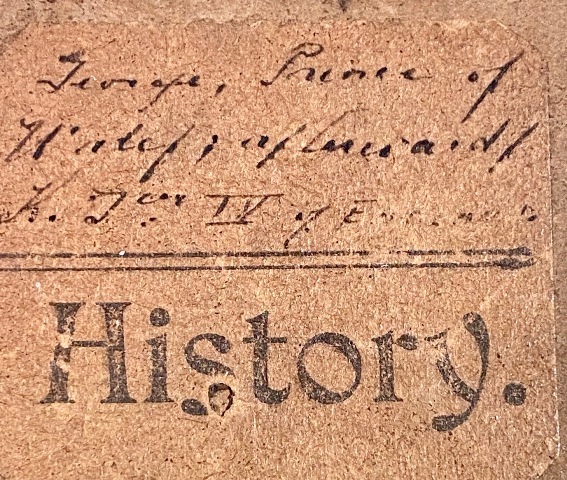 George, Prince of
Wales; afterwards
K. Geo. IV of England.
History.